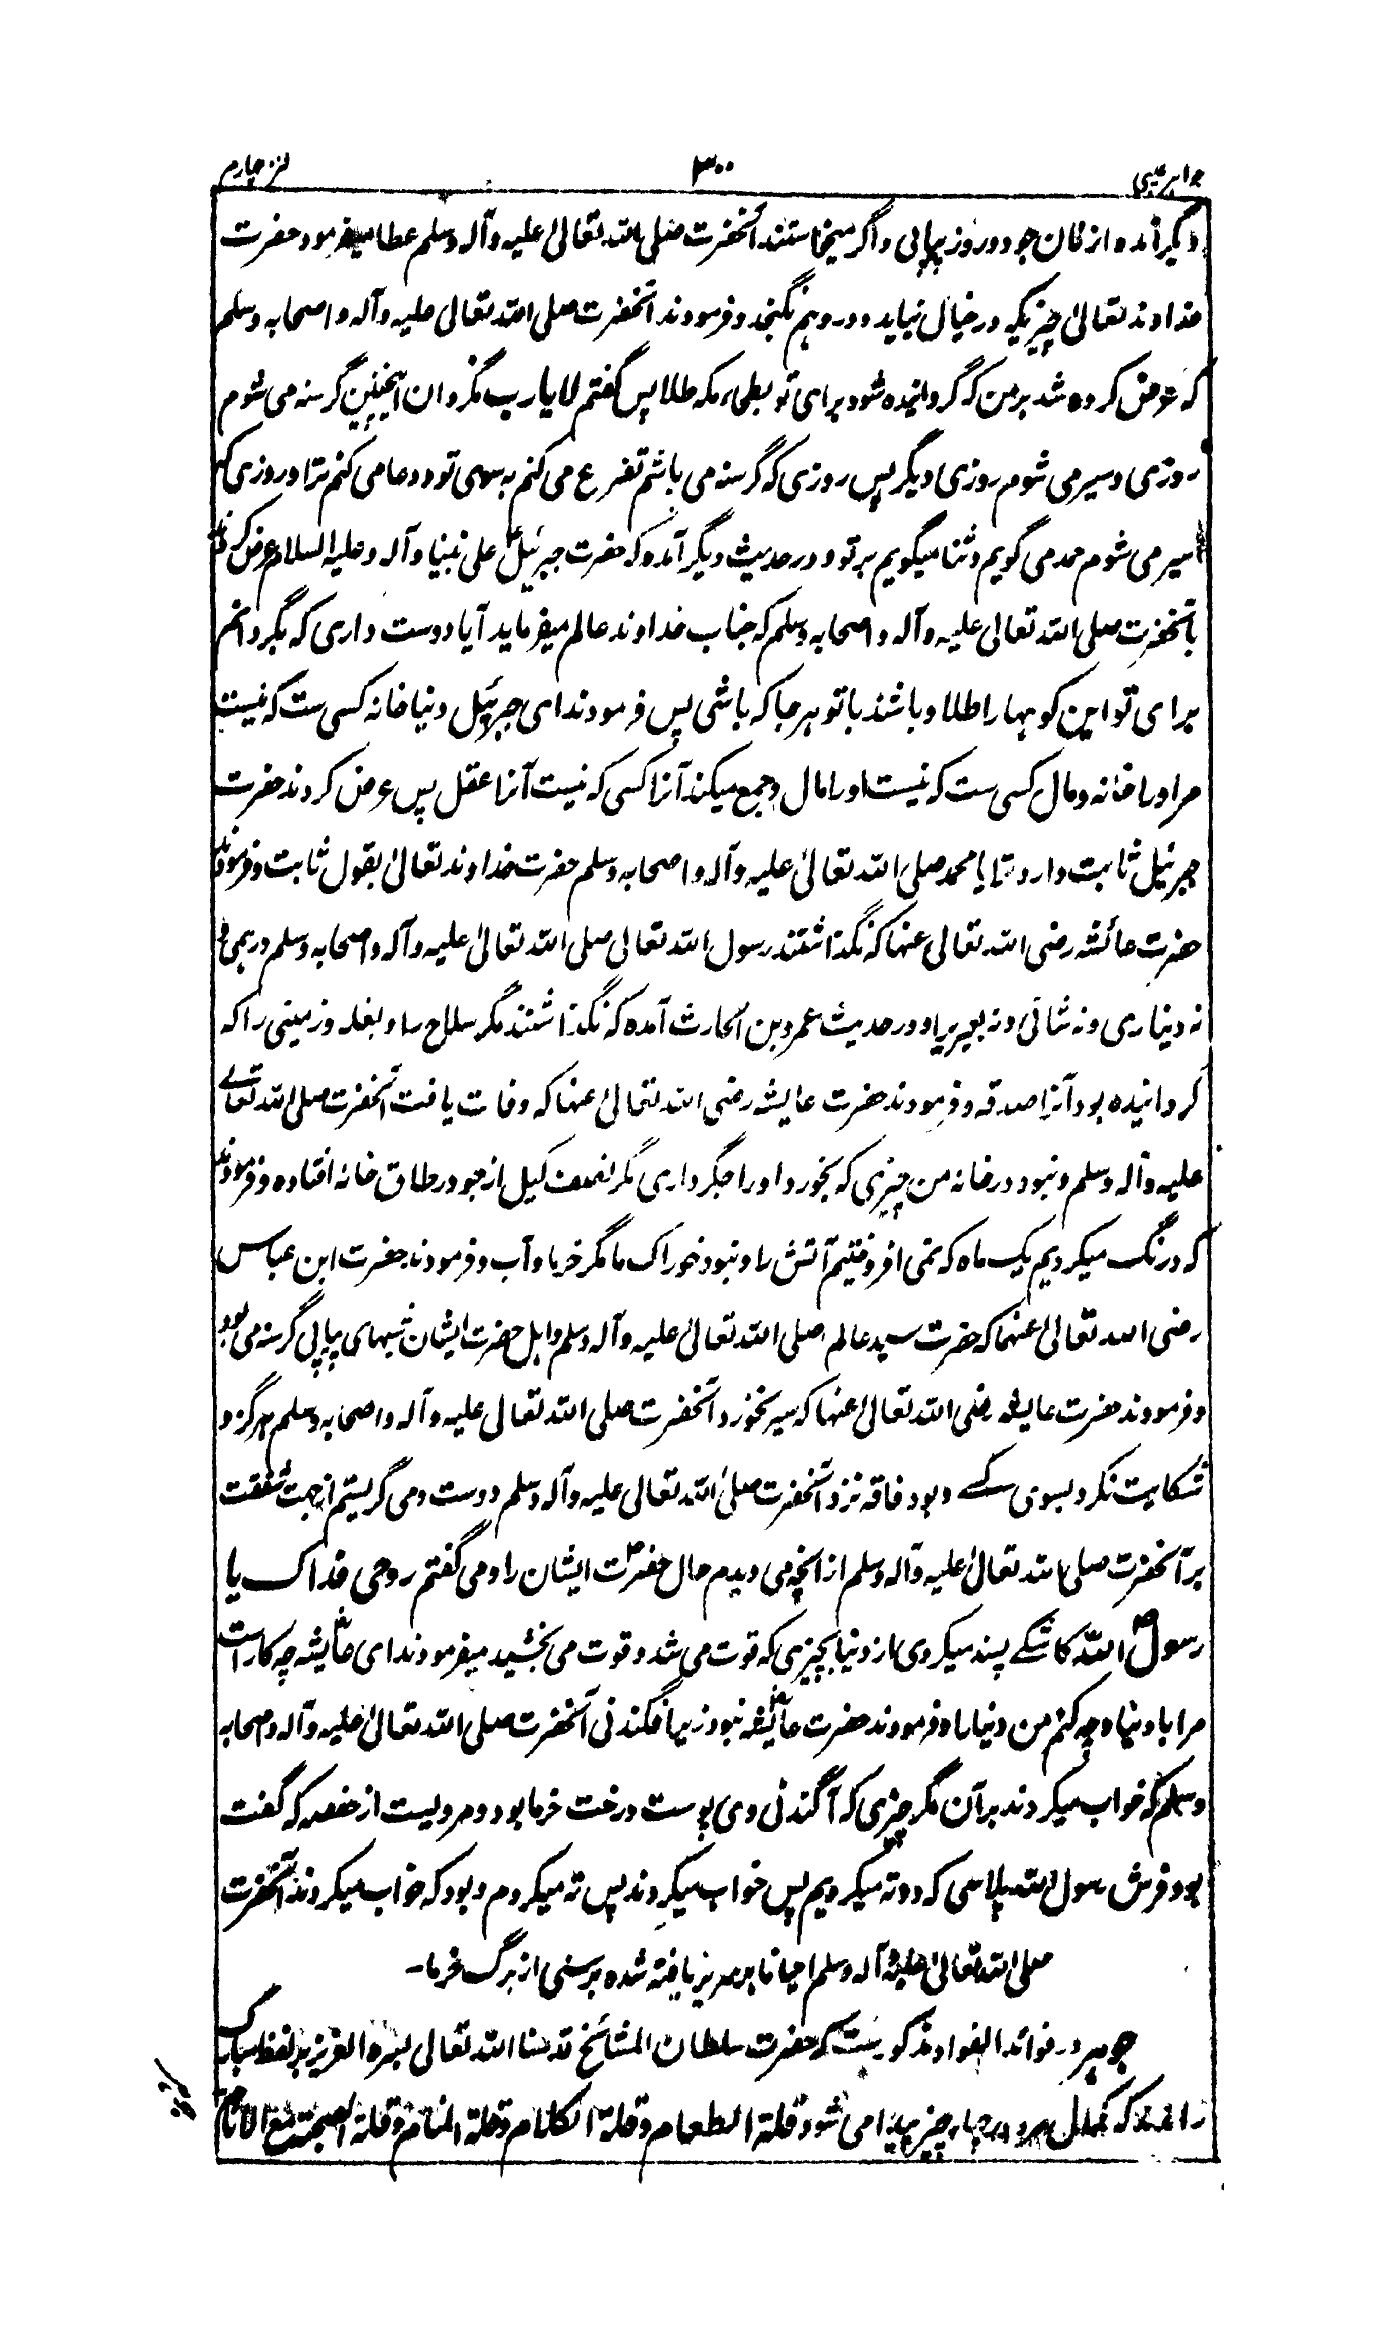 جواہر غیبی ۳۰۰ کنز چہارم
دیگر آمده از نان جو دو روز پیاپی و اگر میخواستند آنحضرت صلی الله تعالیٰ علیه وآله وسلم عطا میفرمود حضرت
خداوند تعالیٰ چیزیکه در خیال نیاید و در وہم نگنجد و فرمودند آنحضرت صلی الله تعالی علیه وآله واصحابه وسلم
که عرض کرده شد بر من که گردانیده شود برای تو بطحاء مکه طلا پس گفتم لا یا رب مگردان اینچنین گرسنه می شوم
روزی و سیر می شوم روزی دیگر پس روزی که گرسنه می باشم تضرع می کنم بسوی تو و دعا می کنم ترا و روزی که
سیر می شوم حمد می گویم و ثنا میگویم بر تو و در حدیث دیگر آمده که حضرت جبرئیل علی نبینا وآله وعلیه السلام عرض کردند
بآنحضرت صلی الله تعالی علیه وآله واصحابه وسلم که جناب خداوند عالم میفرماید آیا دوست داری که بگردانم
برای تو این کوہها را طلا و باشند با تو ہر جا که باشی پس فرمودند ای جبرئیل دنیا خانه کسی ست که نیست
مر او را خانه و مال کسی ست که نیست او را مال و جمع میکند آنرا کسی که نیست آنرا عقل پس عرض کردند حضرت
جبرئیل ثابت دارد ترا یا محمد صلی الله تعالیٰ علیه وآله واصحابه وسلم حضرت خداوند تعالیٰ بقول ثابت و فرمودند
حضرت عائشه رضی الله تعالی عنها که نگذاشتند رسول الله تعالی صلی الله تعالیٰ علیه وآله واصحابه وسلم درہمی و
نه دیناری و نه شاتی و نه بعیری و در حدیث عمرو بن الحارث آمده که نگذاشتند مگر سلاح را و بغله و زمینی را که
گردانیده بود آنرا صدقه و فرمودند حضرت عایشه رضی الله تعالیٰ عنها که وفات یافت آنحضرت صلی الله تعالے
علیه وآله وسلم و نبود در خانه من چیزی که بخورد او را جگرداری مگر نصف کیل از جو در طاق خانه افتاده و فرمودند
که درنگ میکردیم یک ماه که نمی افروختیم آتش را و نبود خوراک ما مگر خرما و آب و فرمودند حضرت ابن عباس
رضی الله تعالیٰ عنهما که حضرت سید عالم صلی الله تعالیٰ علیه وآله وسلم و اہل حضرت ایشان شبہای پیاپی گرسنه می بود
و فرمودند حضرت عایشه رضی الله تعالیٰ عنها که سیر نخورد آنحضرت صلی الله تعالی علیه وآله واصحابه وسلم ہرگز و
شکایت نکرد بسوی کسے و بود فاقه نزد آنحضرت صلیٰ الله تعالی علیه وآله وسلم دوست و می گریستم از جهت شفقت
بر آنحضرت صلی الله تعالیٰ علیه وآله وسلم از آنچه می دیدم حال حضرت ایشان را و می گفتم روحی فداک یا
رسول الله کاشکے پسند میکردی از دنیا بچیزی که قوت می شد و قوت می بخشید میفرمودند ای عایشه چه کار است
مرا با دنیا و چه کنم من دنیا را و فرمودند حضرت عایشه نبود زیر افگندنی آنحضرت صلی الله تعالیٰ علیه وآله واصحابه
وسلم که خواب میکردند بر آن مگر چیزی که آگندنی وی پوست درخت خرما بود و مرویست از حفصه که گفت
بود فرش رسول الله پلاسی که دوته میکردیم پس خواب میکردند پس ته میکردم و بود که خواب میکردند آنحضرت
صلی الله تعالیٰ علیه وآله وسلم احیانا بر سریر بافته شده برسنی از برگ خرما۔
جوہر در فوائد الفواد مذکور ست که حضرت سلطان المشائخ قدسنا الله تعالی بسره العزیز بلفظ مبارک
راندند که کمال مرد در چهار چیز پیدا می شود قلة الطعام وقلة الکلام وقلة المنام وقلة الصحبة مع الانام